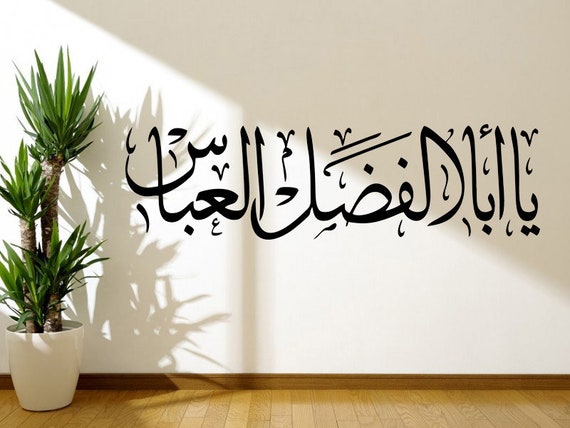 يا أبا الفضل العباس